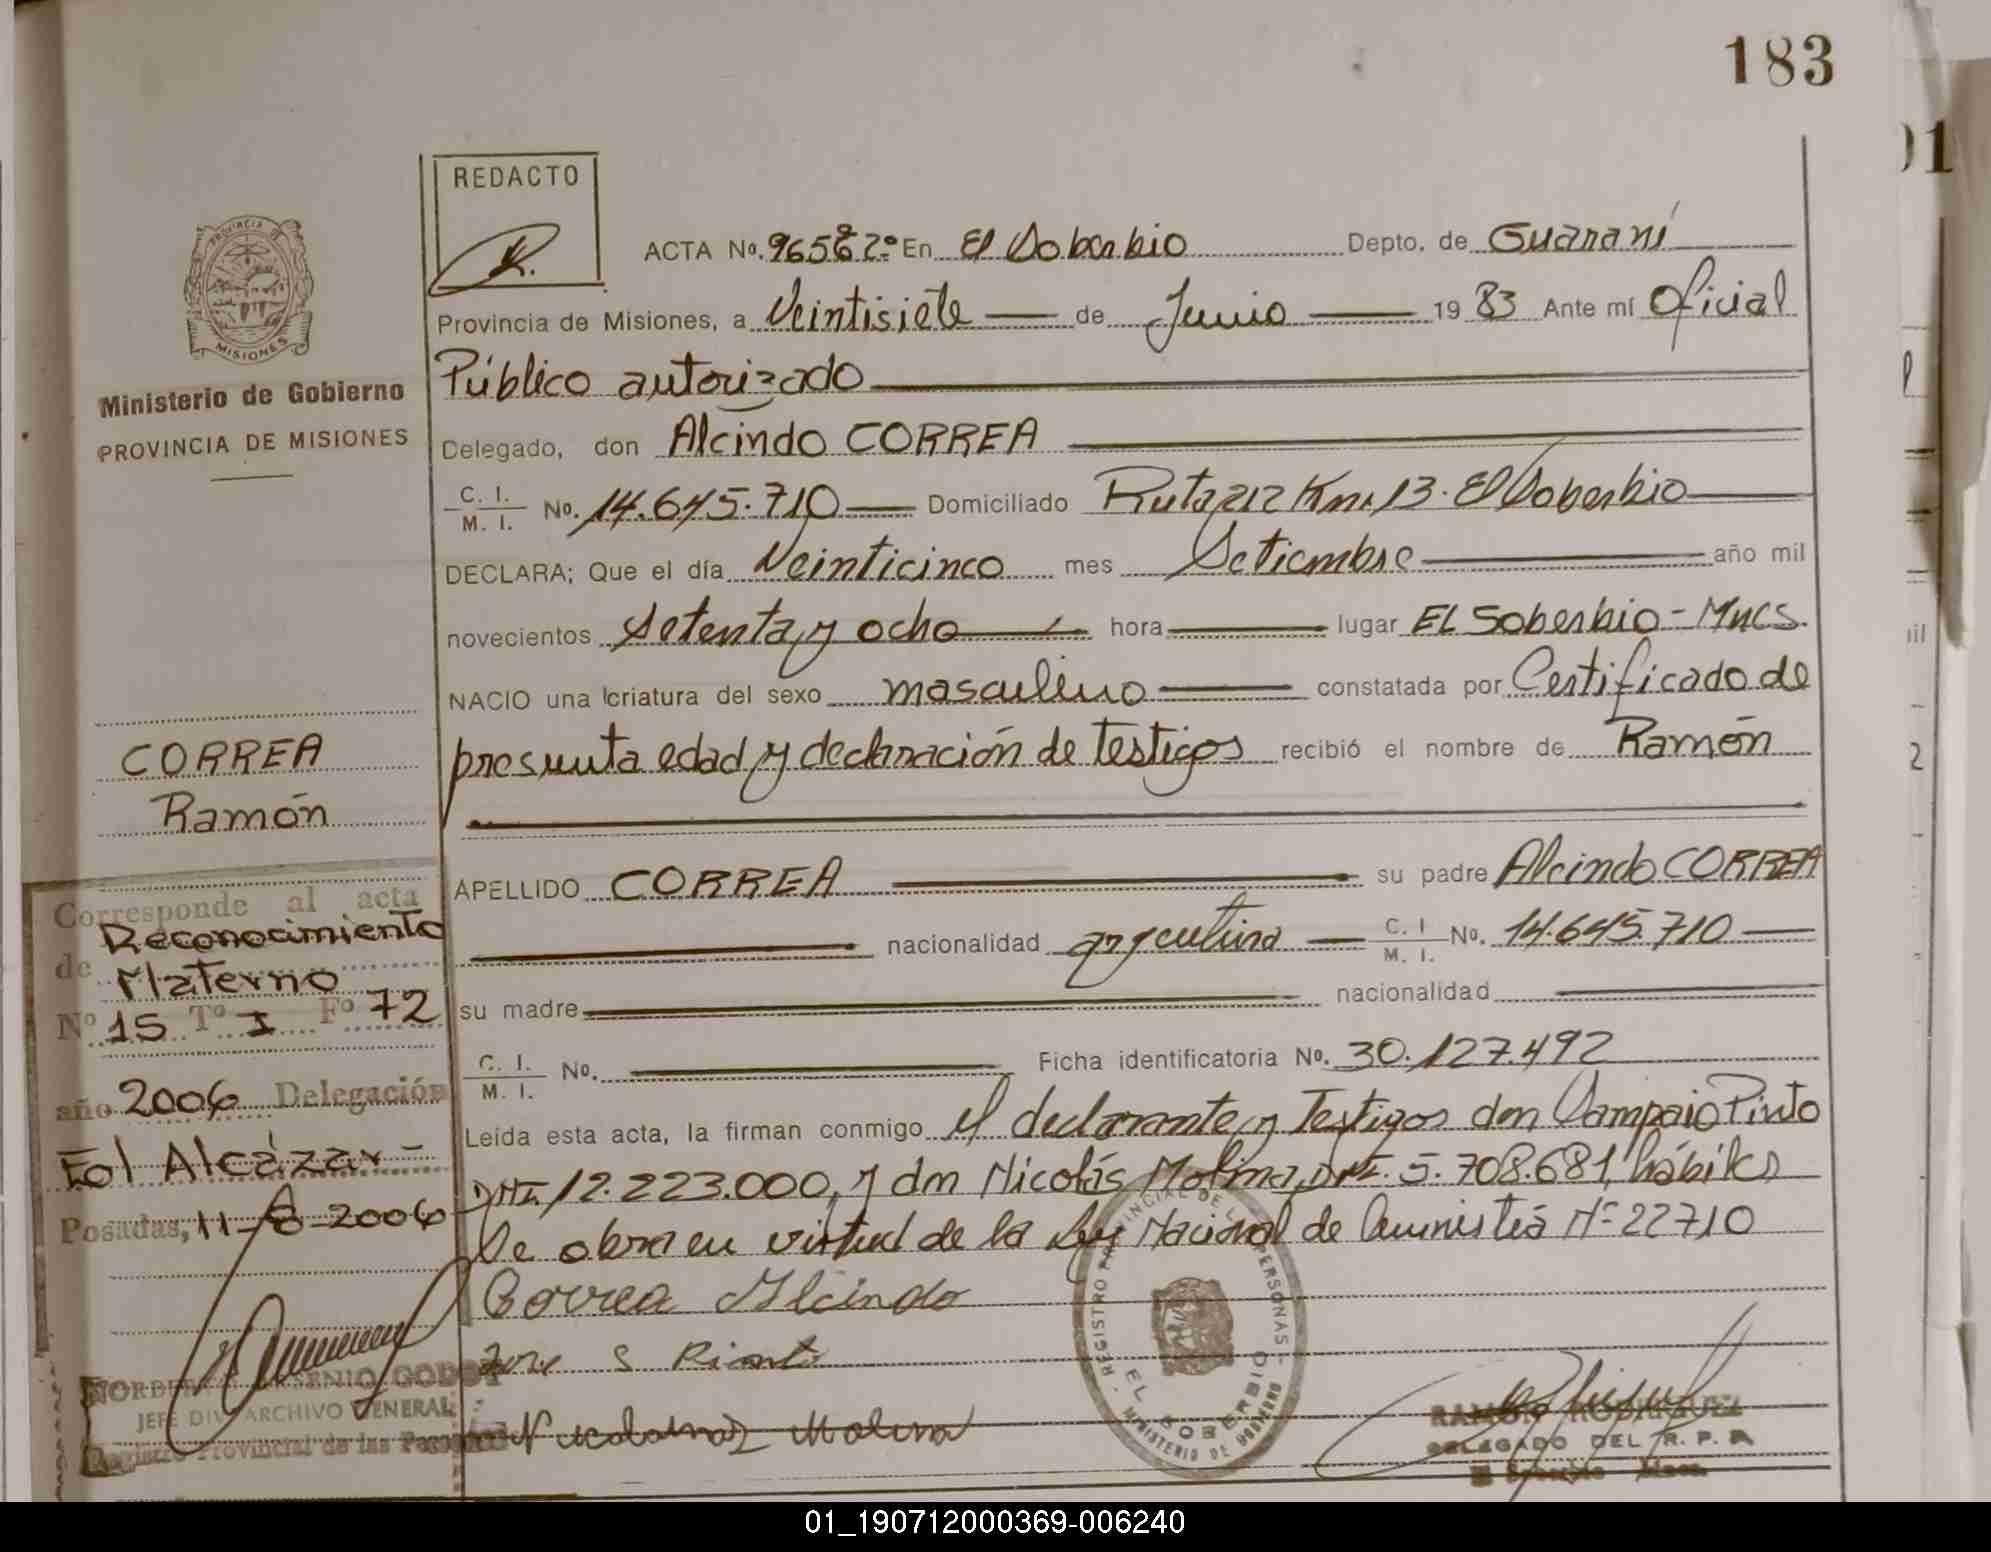 183
REDACTO
PROVINCIA DE
MISIONES
Ministerio de Gobierno
PROVINCIA DE MISIONES
ACTA No. En El Soberbio Depto. de Guaraní
Provincia de Misiones, a Veintisiete de Junio 1983 Ante mí Oficial
Público autorizado
Delegado, don Alcindo CORREA
C. I. / M. I. No. 14.645.710 Domiciliado Ruta 212 Km. 13. El Soberbio
DECLARA; Que el día Veinticinco mes Setiembre año mil
novecientos Setenta y ocho hora lugar EL Soberbio - Mnes.
NACIO una criatura del sexo masculino constatada por Certificado de
presunta edad y declaración de testigos recibió el nombre de Ramón
APELLIDO CORREA su padre Alcindo CORREA
nacionalidad argentina C. I / M. I. No. 14.645.710
su madre nacionalidad
C. I. / M. I. No. Ficha identificatoria No. 30.127.492
Leída esta acta, la firman conmigo el declarante y Testigos don Sampaio Pinto
DNI. 12.223.000, y don Nicolás Molina, DNI. 5.708.681, hábiles
Se obra en virtud de la Ley Nacional de Amnistía Nº 22710
Correa Alcindo
Jose S Pinto
Molina
CORREA
Ramón
Corresponde al acta
de Reconocimiento
Materno
Nº 15 Tº I Fº 72
año 2006 Delegación
Fol Alcázar -
Posadas, 11-8-2006
JEFE DIV. ARCHIVO GENERAL
Registro Provincial de las Personas
REGISTRO PROVINCIAL DE LAS PERSONAS
EL SOBERBIO
MINISTERIO DE GOBIERNO
RAMON RODRIGUEZ
DELEGADO DEL R. P. P.
El Soberbio Mnes.
01_190712000369-006240